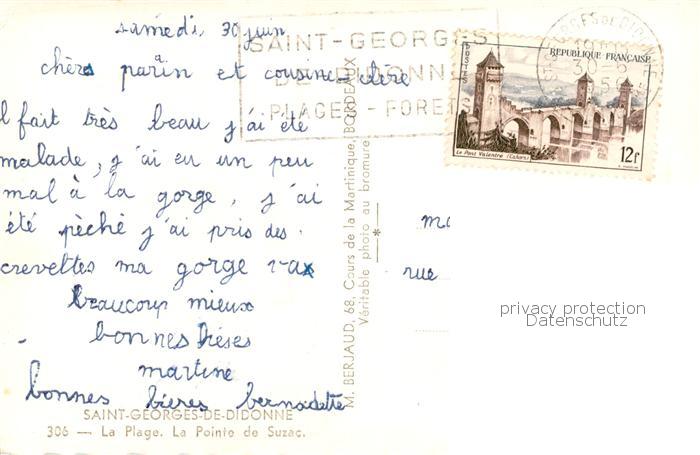 samedi, 30 juin
chères parin et cousine
Il fait très beau j'ai été
malade, j'ai eu un peu
mal à la gorge, j'ai
été pèché j'ai pris des
crevettes ma gorge va
beaucoup mieux
bonnes
martine
bonnes bernadette
SAINT-GEORGES-DE-DIDONNE
306 — La Plage. La Pointe de Suzac.
M. BERJAUD, 68, Cours de la Martinique, BORDEAUX
Véritable photo au bromure
SAINT-GEORGES
DE DIDONNE
PLAGE - FORET
POSTES
REPUBLIQUE FRANÇAISE
Le Pont Valentré (Cahors)
12f
ma
rue
privacy protection
Datenschutz